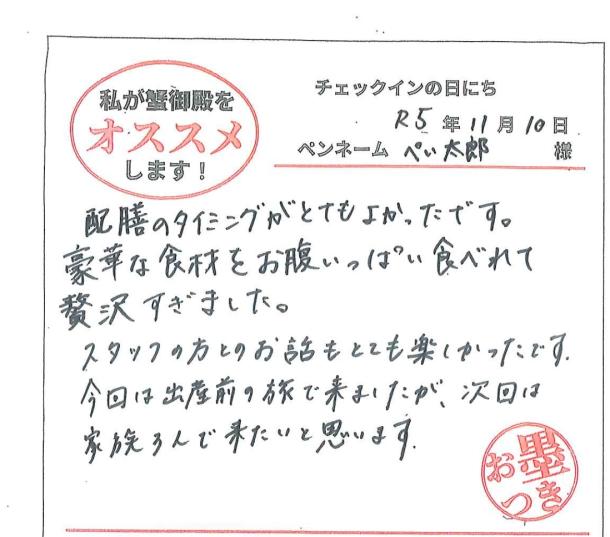 私が蟹御殿を
オススメ
します！
チェックインの日にち
R5年11月10日
ペンネーム ぺい太郎 様
配膳のタイミングがとてもよかったです。
豪華な食材をお腹いっぱい食べれて
贅沢すぎました。
スタッフの方とのお話もとても楽しかったです.
今回は出産前の旅で来ましたが、次回は
家族3人で来たいと思います.
お墨
つき